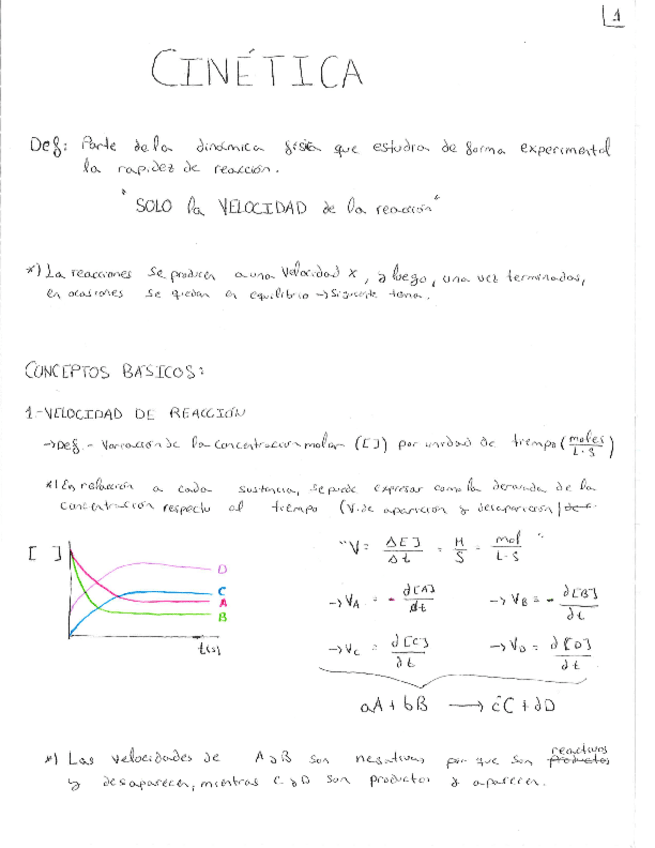 1
CINÉTICA
Def: Parte de la dinámica física que estudia de forma experimental
la rapidez de reacción.
"SOLO la VELOCIDAD de la reacción"
*) La reacciones se producen a una velocidad x, y luego, una vez terminadas,
en ocasiones se quedan en equilibrio → Siguiente tema.
CONCEPTOS BÁSICOS:
1.-VELOCIDAD DE REACCIÓN
→Def.- Variación de la concentración molar ([ ]) por unidad de tiempo (moles / L·S)
*) En relación a cada sustancia, se puede expresar como la derivada de la
concentración respecto al tiempo (V. de aparición y desaparición)
[ ]
D
C
A
B
t(s)
"V = Δ[ ] / Δt = M / S = mol / L·S"
→ V_A = - ∂[A] / ∂t → V_B = - ∂[B] / ∂t
→ V_C = ∂[C] / ∂t → V_D = ∂[D] / ∂t
aA + bB → cC + dD
*) Las velocidades de A y B son negativas por que son productos reactivos
y desaparecen, mientras C y D son productos y aparecen.